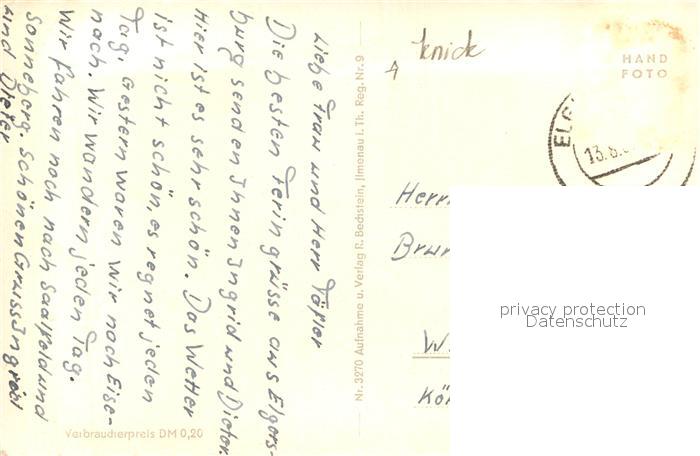 Liebe Frau und Herr Töfler
Die besten Feringrüsse aus Elgers-
burg senden Ihnen Ingrid und Dieter.
Hier ist es sehr schön. Das Wetter
ist nicht schön, es regnet jeden
Tag. Gestern waren wir nach Eise-
nach. Wir wandern jeden Tag.
Wir fahren noch nach Saalfeld und
Sonneberg. Schönen Gruss Ingrid
und Dieter
Verbraucherpreis DM 0,20
Nr. 3270 Aufnahme u. Verlag R. Bechstein, Jlmenau i. Th. Reg. Nr. 9
knick
HAND
FOTO
13.8.
Herrn
W.
privacy protection
Datenschutz